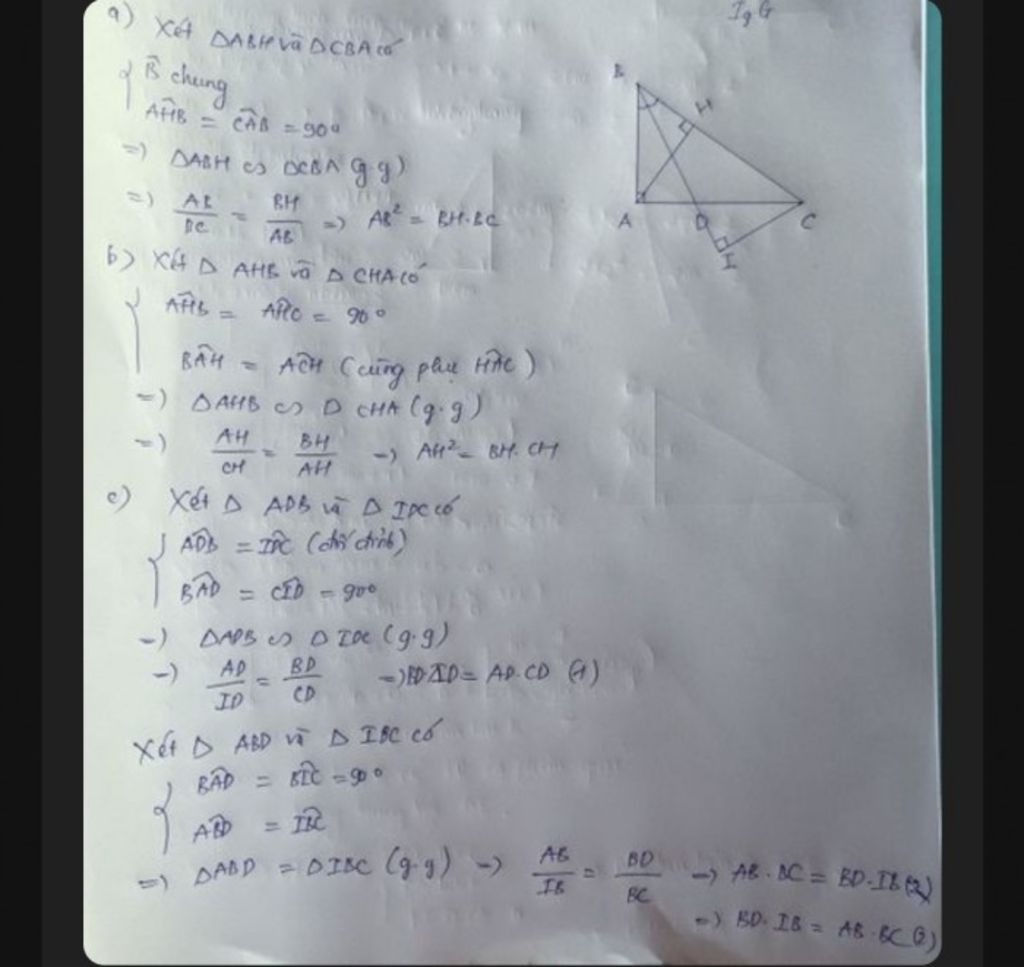 IgG
a) Xét ΔABH và ΔCBA có
B̂ chung
AĤB = CÂB = 90°
=) ΔABH ∽ ΔCBA (g.g)
=) AB/BC = BH/AB =) AB² = BH.BC
b) Xét Δ AHB và Δ CHA có
AĤB = AĤC = 90°
BÂH = AĈH (cùng phụ HÂC)
=) ΔAHB ∽ Δ CHA (g.g)
=) AH/CH = BH/AH -) AH² = BH.CH
c) Xét Δ ADB và Δ IDC có
AD̂B = ID̂C (đối đỉnh)
BÂD = CÎD = 90°
-) ΔADB ∽ Δ IDC (g.g)
-) AD/ID = BD/CD =) BD.ID = AD.CD (1)
Xét Δ ABD và Δ IBC có
BÂD = BÎC = 90°
AB̂D = IB̂C
=) ΔABD = ΔIBC (g.g) -) AB/IB = BD/BC -) AB.BC = BD.IB (2)
=) BD.IB = AB.BC (2)
B
H
A
D
C
I